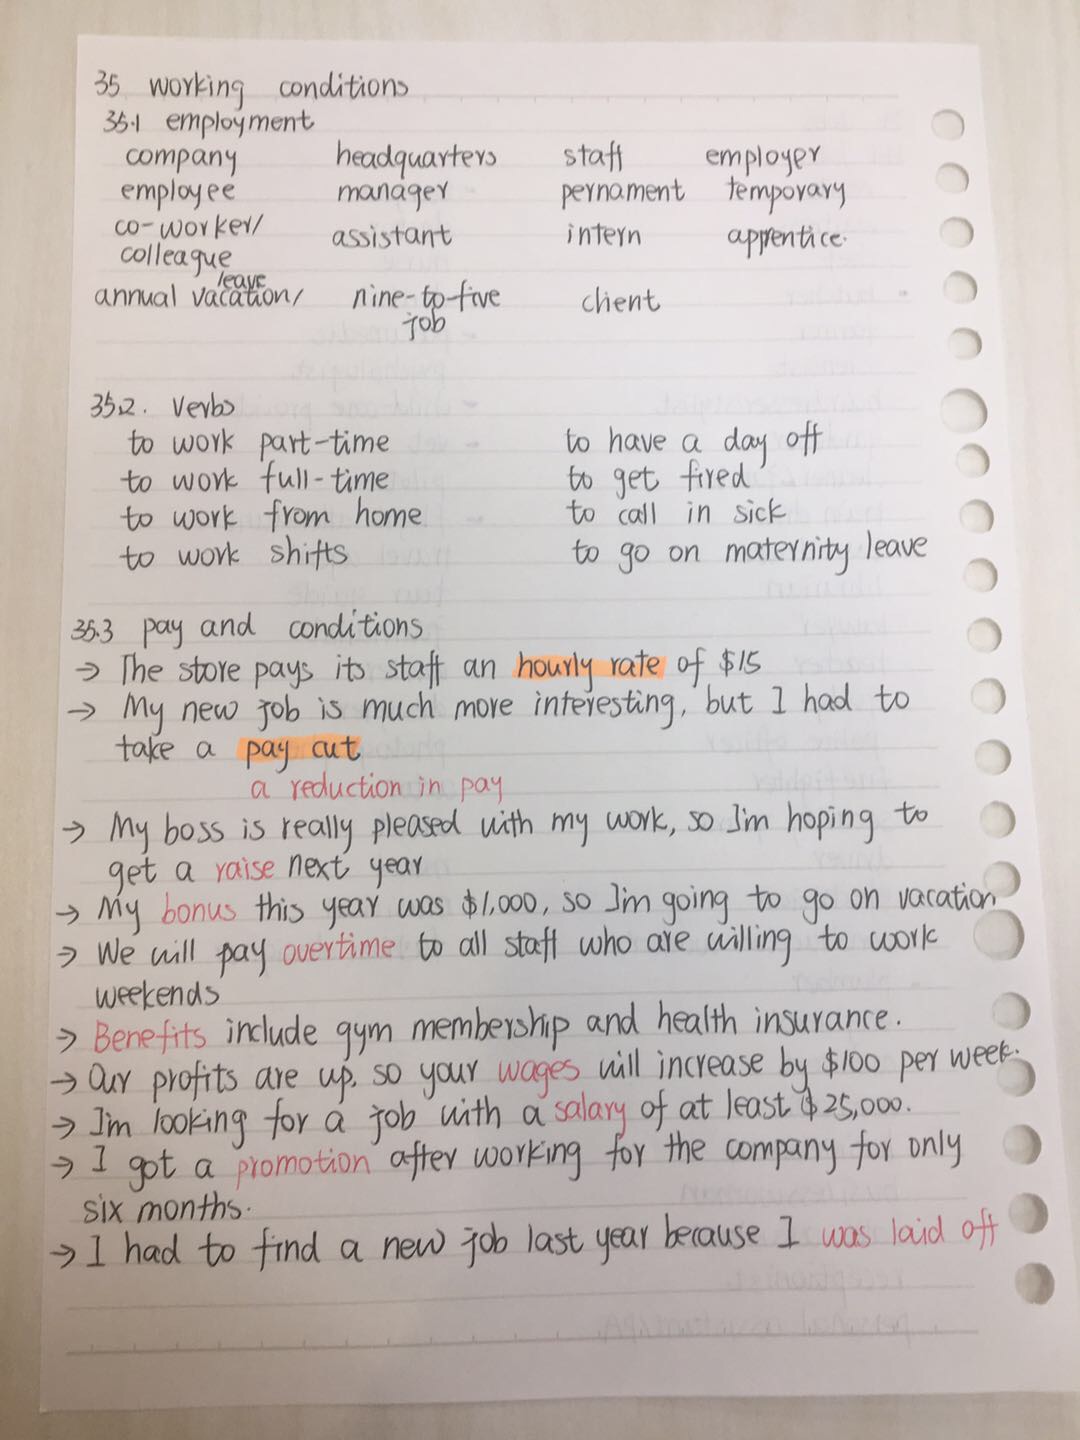 35 working conditions
35.1 employment
company headquarters staff employer
employee manager pernament temporary
co-worker/ assistant intern apprentice.
colleague
leave
annual vacation/ nine-to-five client
job
35.2. Verbs
to work part-time to have a day off
to work full-time to get fired
to work from home to call in sick
to work shifts to go on maternity leave
35.3 pay and conditions
→ The store pays its staff an hourly rate of $15
→ My new job is much more interesting, but I had to
take a pay cut
a reduction in pay
→ My boss is really pleased with my work, so I'm hoping to
get a raise next year
→ My bonus this year was $1,000, so I'm going to go on vacation
→ We will pay overtime to all staff who are willing to work
weekends
→ Benefits include gym membership and health insurance.
→ Our profits are up, so your wages will increase by $100 per week.
→ I'm looking for a job with a salary of at least $25,000.
→ I got a promotion after working for the company for only
six months.
→ I had to find a new job last year because I was laid off